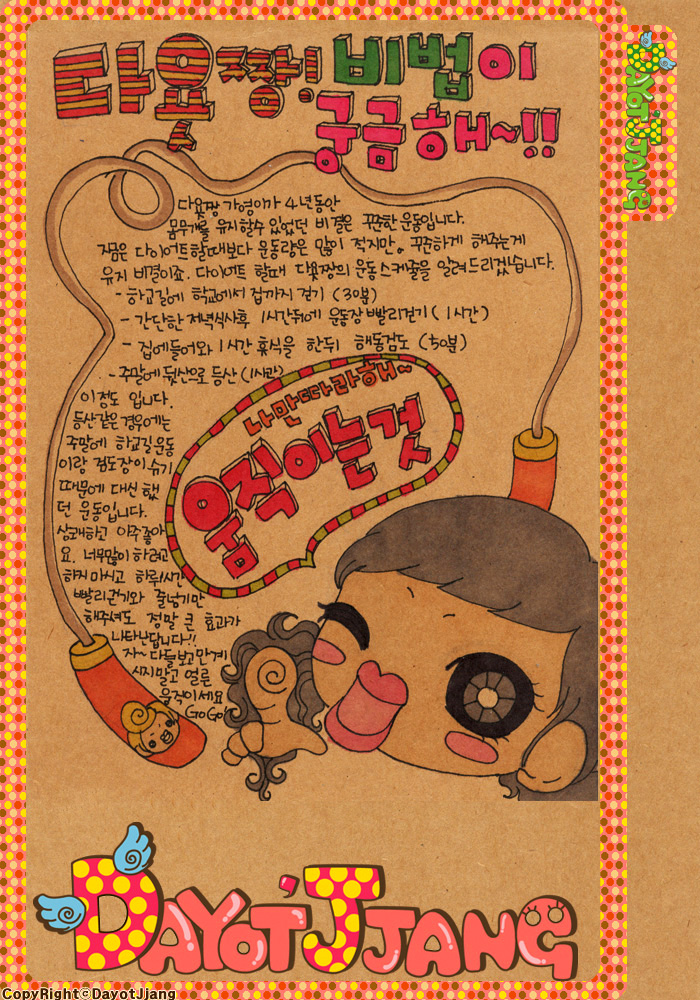 다욧짱! 비법이
궁금해~!!
DAYOT'JJANG
다욧짱 가영이가 4년동안
몸무게를 유지할수 있었던 비결은 꾸준한 운동입니다.
지금은 다이어트할때보다 운동량은 많이 적지만, 꾸준하게 해주는게
유지 비결이죠. 다이어트 할때 다욧짱의 운동스케줄을 알려드리겠습니다.
- 하교길에 학교에서 집까지 걷기 (30분)
- 간단한 저녁식사후 1시간뒤에 운동장 빨리걷기 (1시간)
- 집에들어와 1시간 휴식을 한뒤 해동검도 (50분)
- 주말에 뒷산으로 등산 (1시간)
이정도 입니다.
등산같은 경우에는
주말에 하교길운동
이랑 검도장이 쉬기
때문에 대신 했
던 운동입니다.
상쾌하고 아주좋아
요. 너무많이 하려고
하지마시고 하루1시간
빨리걷기와 줄넘기만
해주셔도 정말 큰 효과가
나타난답니다!!
자~ 다들보고만계
시지말고 얼른
움직이세요
GoGo!!
나만따라해~
움직이는것
DAYOT'JJANG
CopyRight©DayotJjang